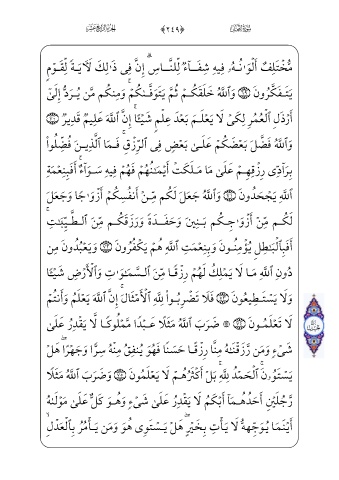 سورة النحل ﴿٢٤٩﴾ الجزء الرابع عشر
مُّخْتَلِفٌ أَلْوَٰنُهُۥ فِيهِ شِفَآءٌ لِّلنَّاسِ ۗ إِنَّ فِى ذَٰلِكَ لَـَٔايَةً لِّقَوْمٍ
يَتَفَكَّرُونَ ۝ وَٱللَّهُ خَلَقَكُمْ ثُمَّ يَتَوَفَّىٰكُمْ ۚ وَمِنكُم مَّن يُرَدُّ إِلَىٰٓ
أَرْذَلِ ٱلْعُمُرِ لِكَىْ لَا يَعْلَمَ بَعْدَ عِلْمٍ شَيْـًٔا ۚ إِنَّ ٱللَّهَ عَلِيمٌ قَدِيرٌ ۝
وَٱللَّهُ فَضَّلَ بَعْضَكُمْ عَلَىٰ بَعْضٍ فِى ٱلرِّزْقِ ۚ فَمَا ٱلَّذِينَ فُضِّلُوا۟
بِرَآدِّى رِزْقِهِمْ عَلَىٰ مَا مَلَكَتْ أَيْمَٰنُهُمْ فَهُمْ فِيهِ سَوَآءٌ ۚ أَفَبِنِعْمَةِ
ٱللَّهِ يَجْحَدُونَ ۝ وَٱللَّهُ جَعَلَ لَكُم مِّنْ أَنفُسِكُمْ أَزْوَٰجًا وَجَعَلَ
لَكُم مِّنْ أَزْوَٰجِكُم بَنِينَ وَحَفَدَةً وَرَزَقَكُم مِّنَ ٱلطَّيِّبَٰتِ ۚ
أَفَبِٱلْبَٰطِلِ يُؤْمِنُونَ وَبِنِعْمَتِ ٱللَّهِ هُمْ يَكْفُرُونَ ۝ وَيَعْبُدُونَ مِن
دُونِ ٱللَّهِ مَا لَا يَمْلِكُ لَهُمْ رِزْقًا مِّنَ ٱلسَّمَٰوَٰتِ وَٱلْأَرْضِ شَيْـًٔا
وَلَا يَسْتَطِيعُونَ ۝ فَلَا تَضْرِبُوا۟ لِلَّهِ ٱلْأَمْثَالَ ۚ إِنَّ ٱللَّهَ يَعْلَمُ وَأَنتُمْ
لَا تَعْلَمُونَ ۝ ۞ ضَرَبَ ٱللَّهُ مَثَلًا عَبْدًا مَّمْلُوكًا لَّا يَقْدِرُ عَلَىٰ
شَىْءٍ وَمَن رَّزَقْنَٰهُ مِنَّا رِزْقًا حَسَنًا فَهُوَ يُنفِقُ مِنْهُ سِرًّا وَجَهْرًا ۖ هَلْ
يَسْتَوُۥنَ ۚ ٱلْحَمْدُ لِلَّهِ ۚ بَلْ أَكْثَرُهُمْ لَا يَعْلَمُونَ ۝ وَضَرَبَ ٱللَّهُ مَثَلًا
رَّجُلَيْنِ أَحَدُهُمَآ أَبْكَمُ لَا يَقْدِرُ عَلَىٰ شَىْءٍ وَهُوَ كَلٌّ عَلَىٰ مَوْلَىٰهُ
أَيْنَمَا يُوَجِّههُّ لَا يَأْتِ بِخَيْرٍ ۖ هَلْ يَسْتَوِى هُوَ وَمَن يَأْمُرُ بِٱلْعَدْلِ ۙ